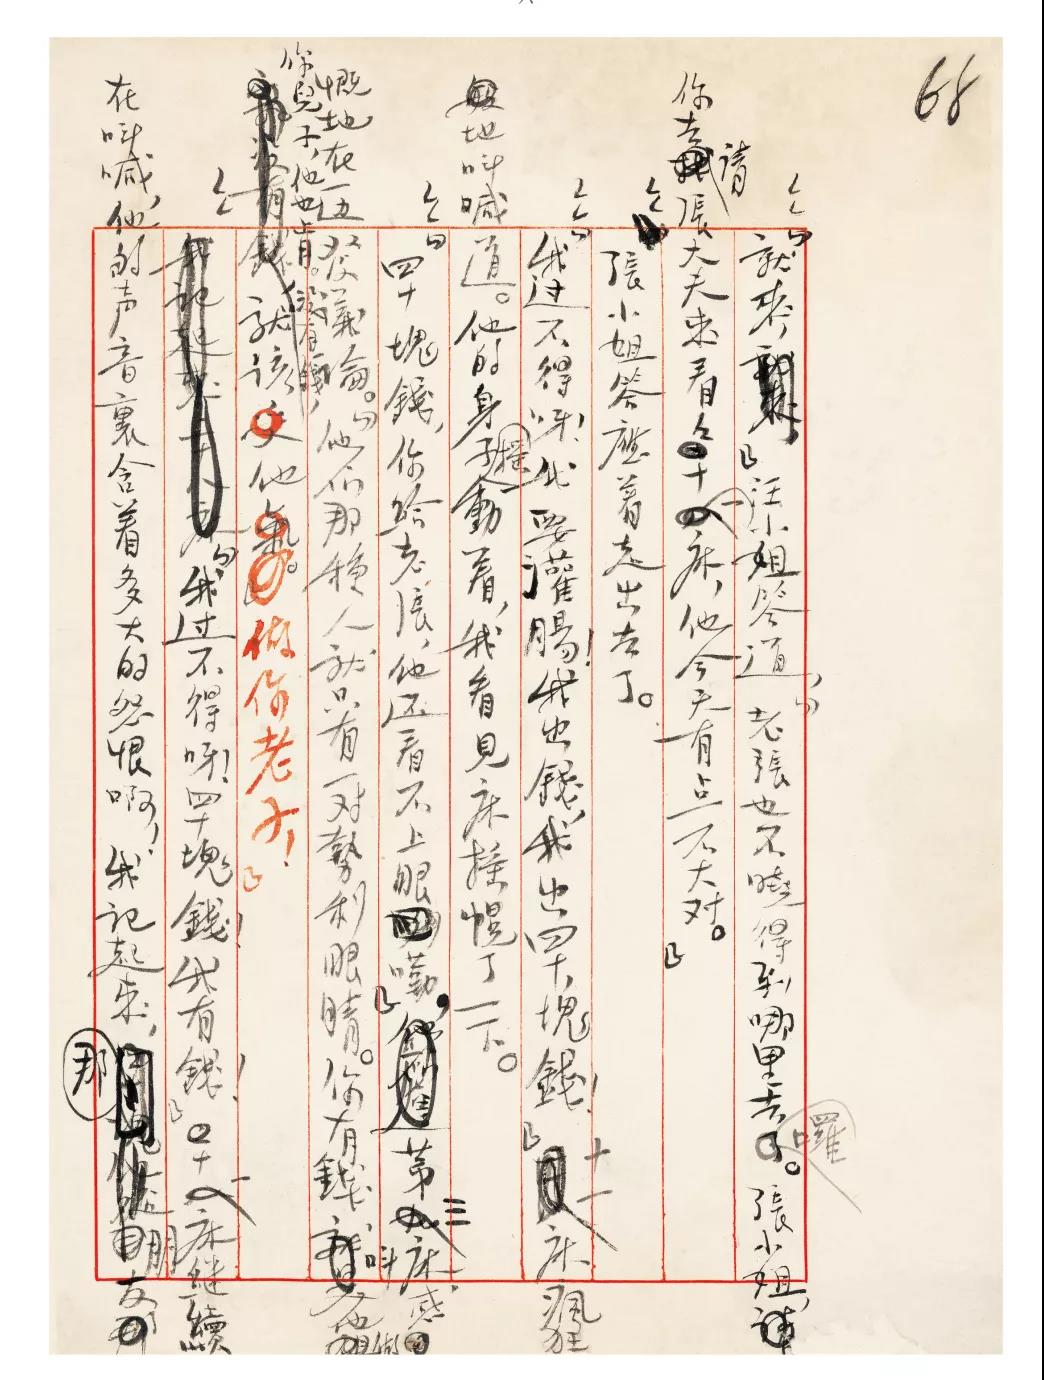 68
就来,
」汪小姐答道,「老張也不曉得到哪里去囉。張小姐,
你去請張大夫来看看十一床,他今天有点不大对。」
張小姐答應着走出去了。
「我过不得呀!我要灌腸!我出錢,我出四十塊錢!」十一床瘋狂
地叫喊道。他的身子搖動着,我看見床搖幌了一下。
「四十塊錢,你給老張,他还看不上眼嘞,」第三床感
慨地在一边发議論。「他們那種人就只有一对勢利眼睛。你有錢,叫他做
你兒子,他也肯。没有錢,
就該受他氣。做你老子!」
「我过不得呀!四十塊錢!我有錢!」十一床继續
在叫喊,他的声音裏含着多大的怨恨啊,我記起来,那
朋友